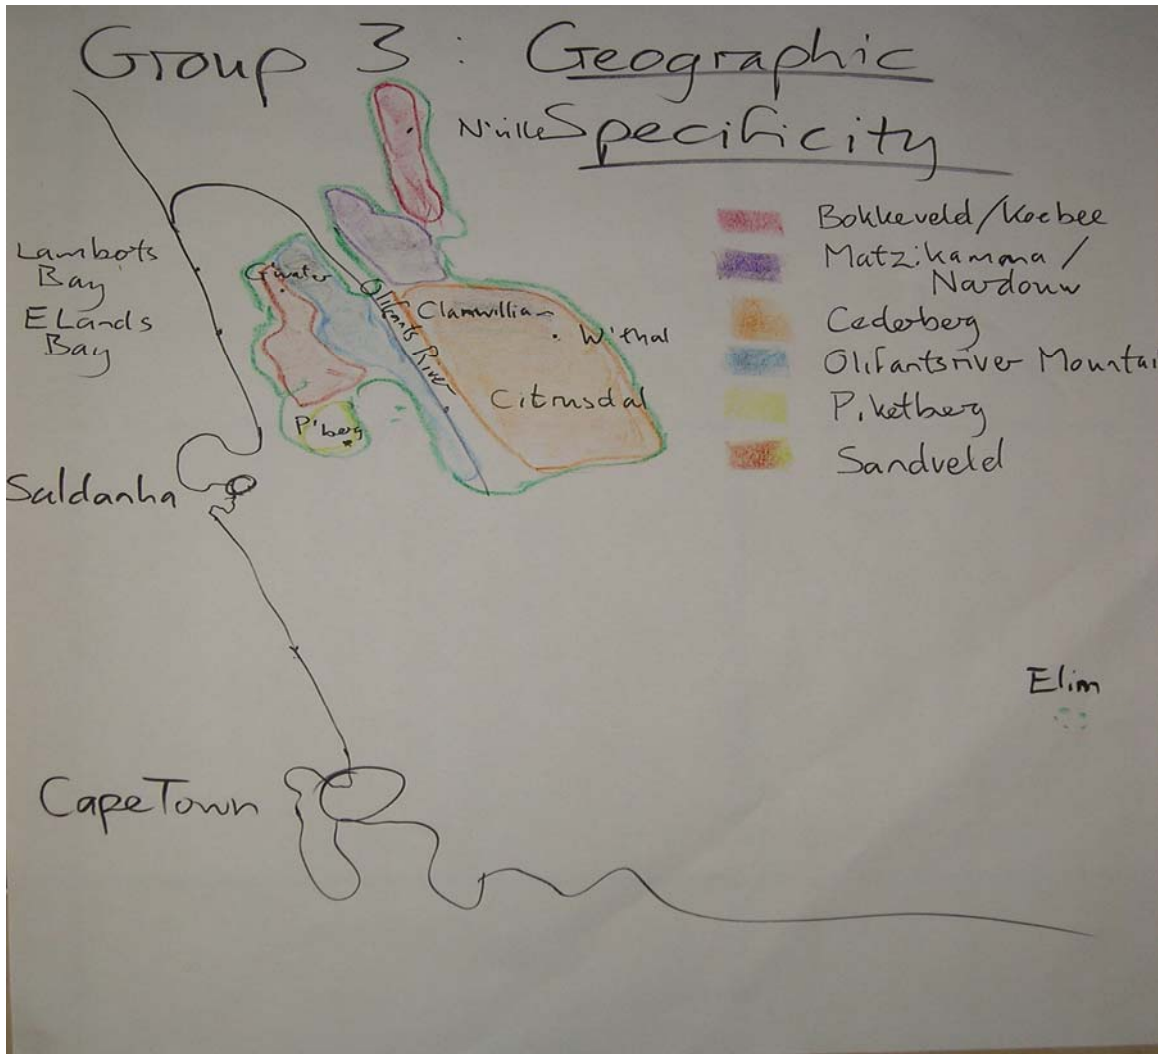 Group 3 : Geographic
Specificity
N'ville
Lambots
Bay
ELands
Bay
G'water
Olifants River
Clanwilliam
W'thal
Citrusdal
P'berg
Bokkeveld/Koebee
Matzikamma /
Nardouw
Cederberg
Olifantsriver Mountai
Piketberg
Sandveld
Saldanha
Elim
Cape Town